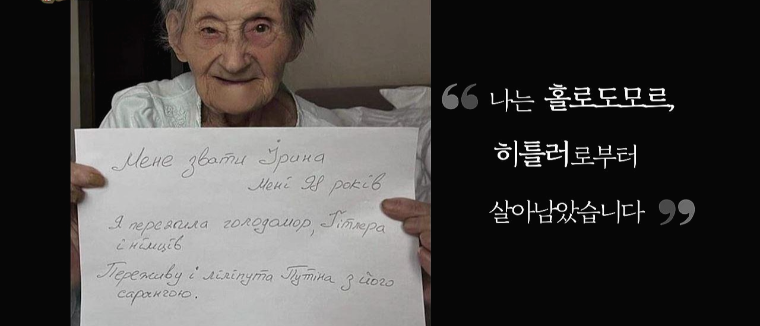 Мене звати Ірина
Мені 98 років
Я пережила голодомор, Гітлера
і німців
Переживу і ліліпута Путіна з його
саранчою.
“ 나는 홀로도모르,
히틀러로부터
살아남았습니다 ”